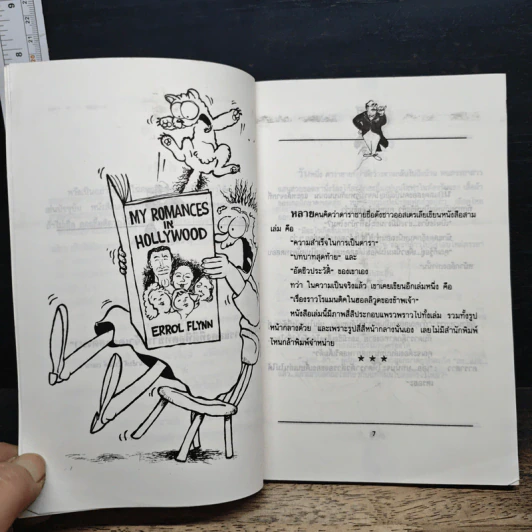 MY ROMANCES
IN
HOLLYWOOD
ERROL FLYNN
หลายคนคิดว่าดาราชายชื่อดังชาวออสเตรเลียเขียนหนังสือสาม
เล่ม คือ
"ความสำเร็จในการเป็นดารา"
"บทบาทสุดท้าย" และ
"อัตชีวประวัติ" ของเขาเอง
ทว่า ในความเป็นจริงแล้ว เขาเคยเขียนอีกเล่มหนึ่ง คือ
"เรื่องราวโรแมนติคในฮอลลีวูดของข้าพเจ้า"
หนังสือเล่มนี้มีภาพสี่สีประกอบแพรวพราวไปทั้งเล่ม รวมทั้งรูป
หน้ากลางด้วย และเพราะรูปสี่สีหน้ากลางนั่นเอง เลยไม่มีสำนักพิมพ์
ไหนกล้าพิมพ์จำหน่าย
★ ★ ★
7